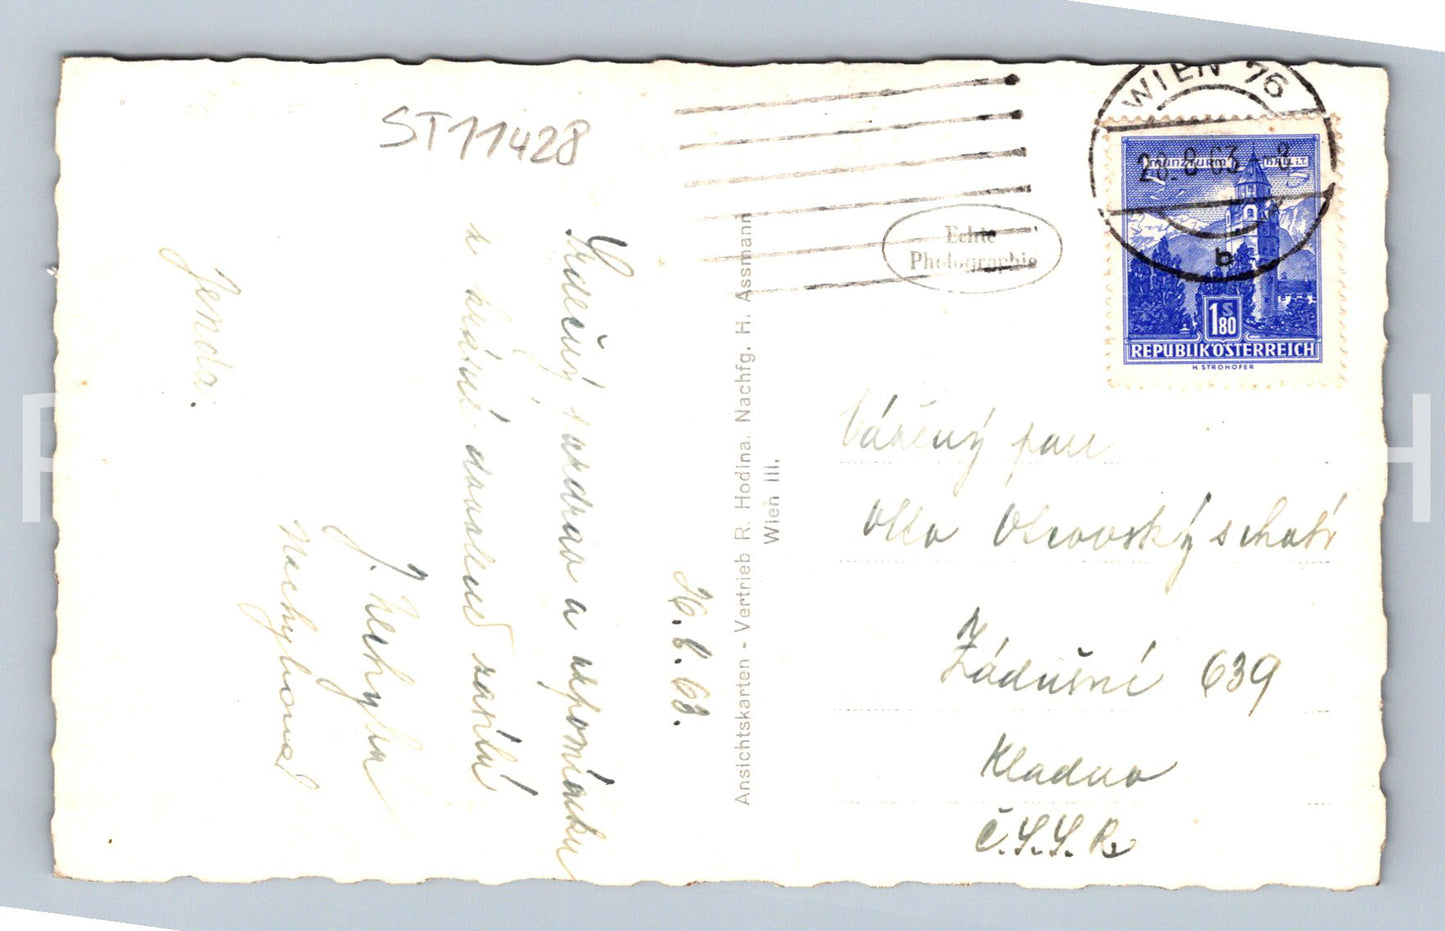 ST11428
26.8.63.
Srdečný pozdrav a vzpomínku
z krásné dovolené zasílá
J. Nechyba
Nechybová
Jenda.
Ansichtskarten - Vertrieb R. Hodina. Nachfg. H. Assmann
Wien III.
Echte
Photographie
WIEN 76
28.8.63 - 8
b
MÜNZTURM HALL I.T.
1S80
REPUBLIK ÖSTERREICH
H. STROHOFER
Vážený pan
Otto
Zádušní 639
Kladno
Č.S.S.R.